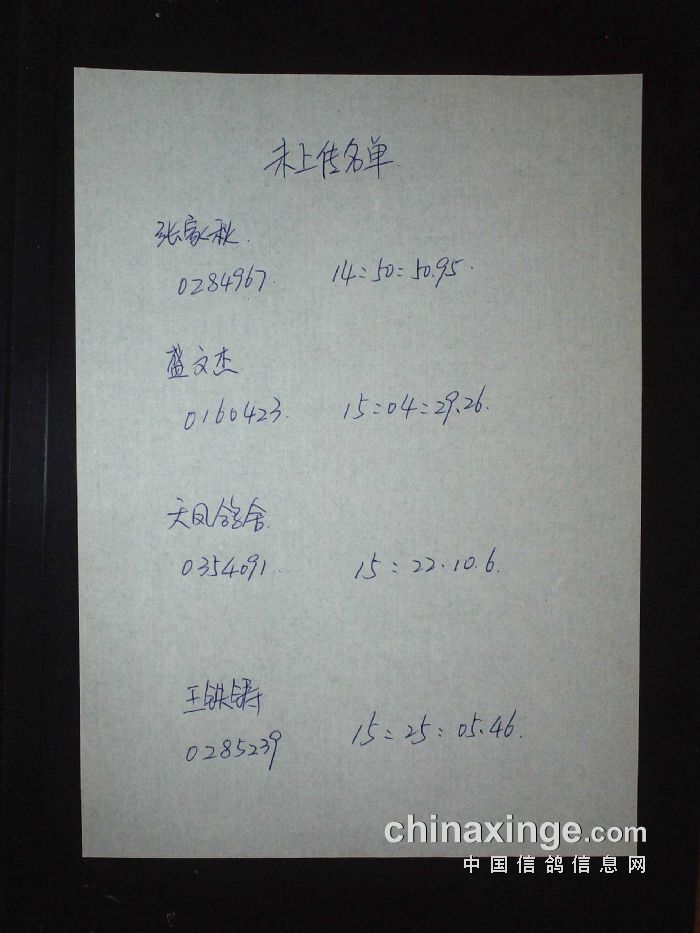 未上传名单.
张家秋.
0284967. 14:50:50.95.
盛文杰.
0160423. 15:04:29.26.
天凤鸽舍.
0354091. 15:22.10.6.
王铁铸
0285239 15:25:05.46.
chinaxinge.com
中国信鸽信息网